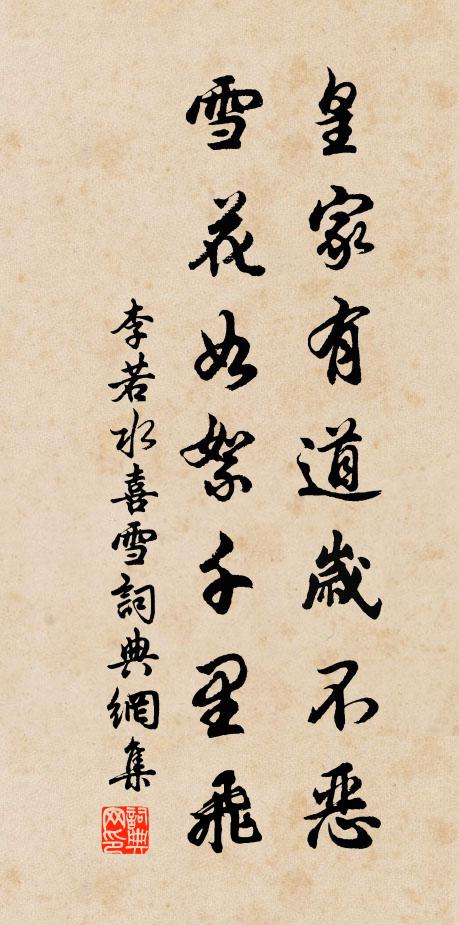 皇家有道歲不惡
雪花如絮千里飛
李若水喜雪詞典網集
詞典網印